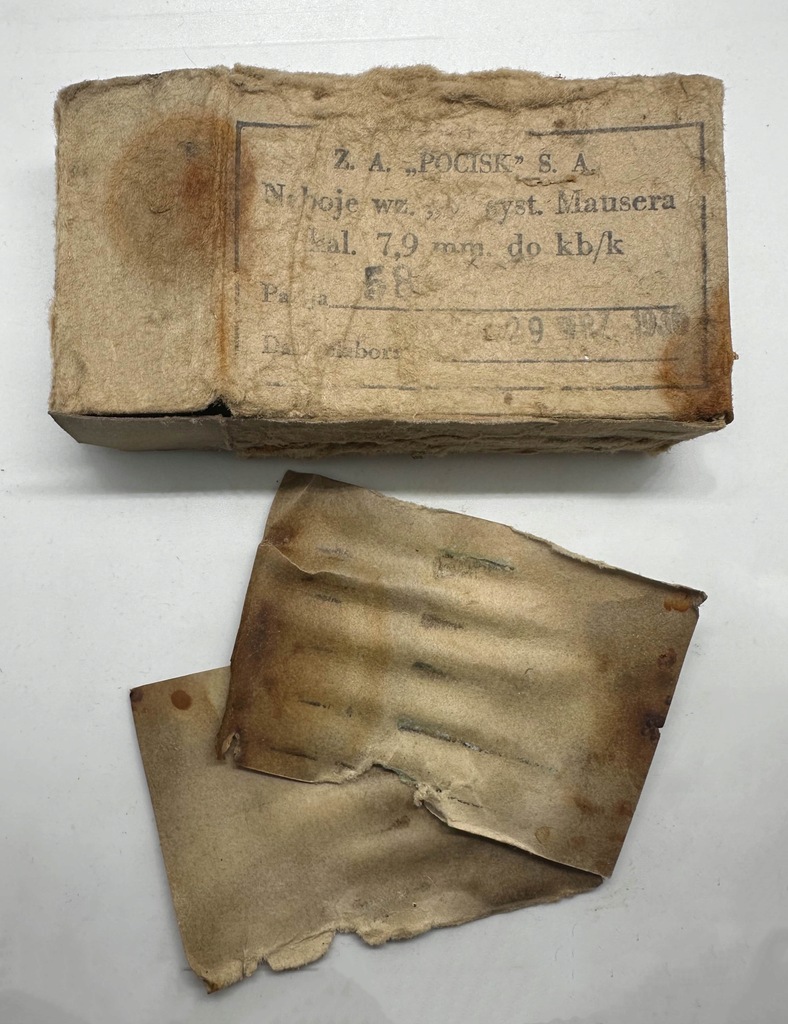 Z. A. „POCISK” S. A.
Naboje wz. syst. Mausera
kal. 7,9 mm. do kb/k
Partja 58
29 WRZ. 193